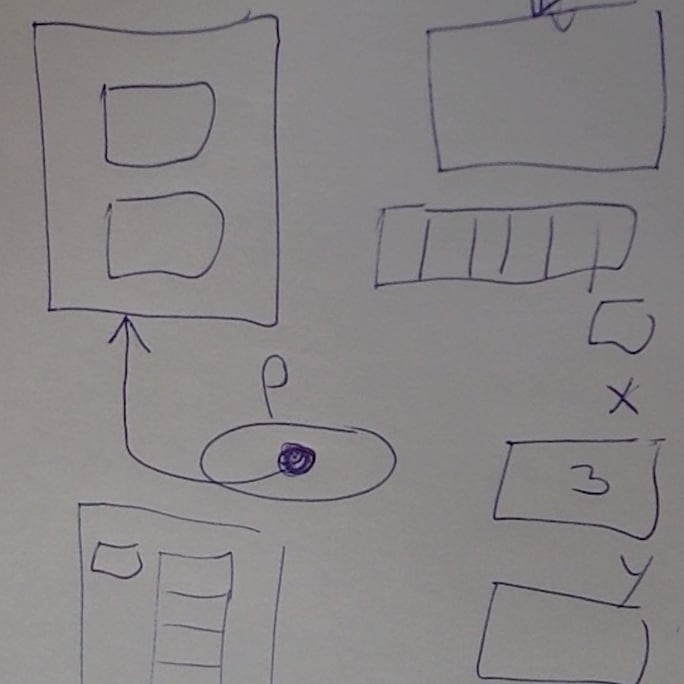 P
X
3
Y